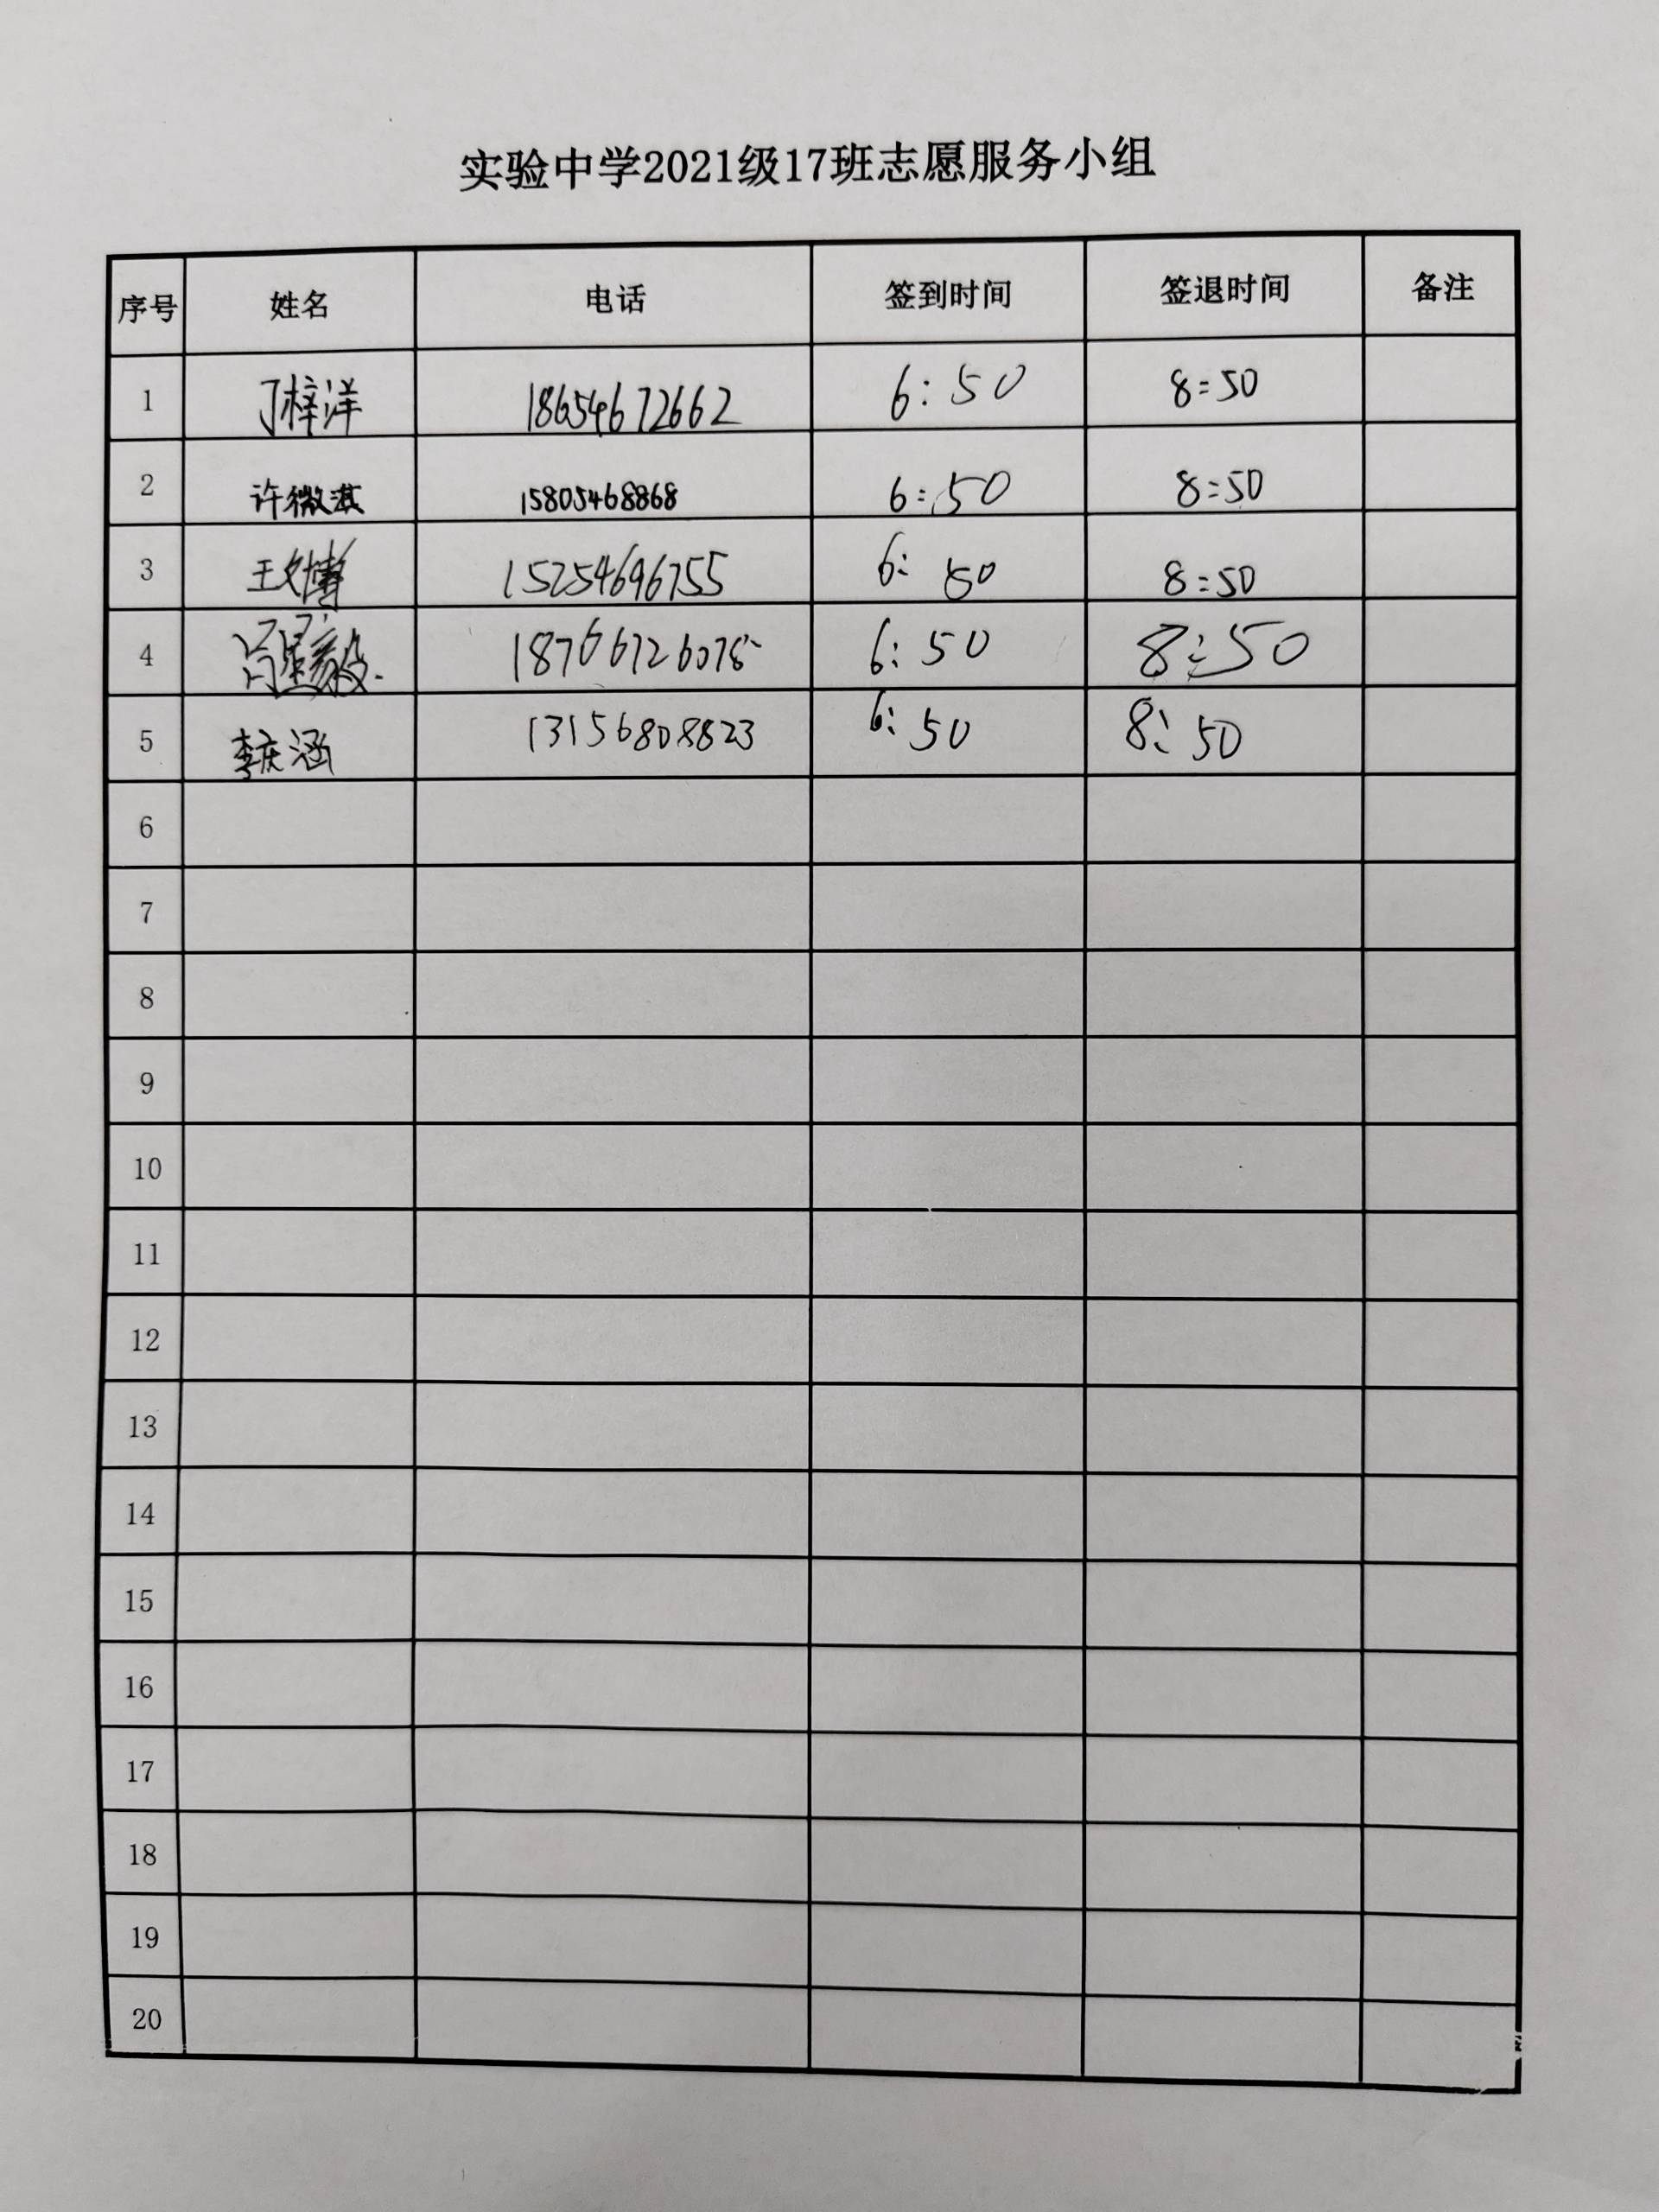 实验中学2021级17班志愿服务小组
序号 姓名 电话 签到时间 签退时间 备注
1 丁梓洋 18654672662 6:50 8:50
2 许微淇 15805468868 6:50 8:50
3 王文博 15254696755 6:50 8:50
4 6:50 8:50
5 李庆涵 13156808823 6:50 8:50
6
7
8
9
10
11
12
13
14
15
16
17
18
19
20